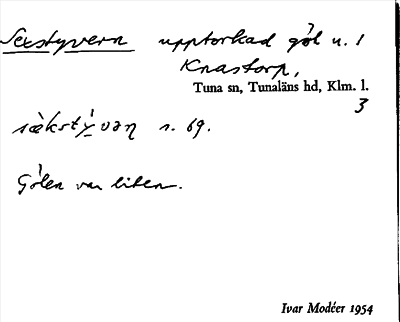 Sexstyvern upptorkad göl u. 1
Knastorp,
Tuna sn, Tunaläns hd, Klm. l.
3
sèkstỳvən s. 69.
Gölen var liten.
Ivar Modéer 1954